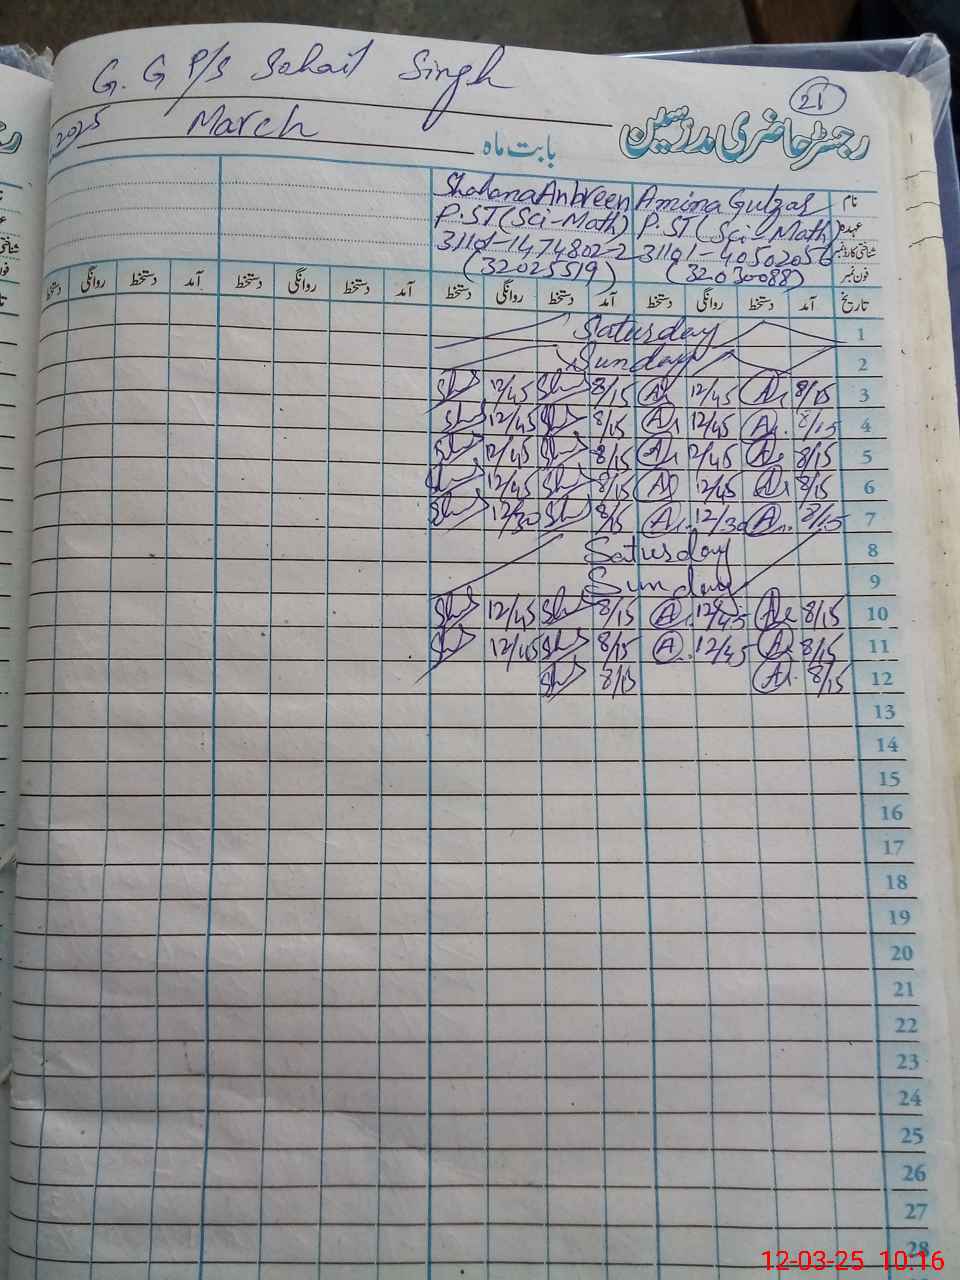 G. G P/S Sohail Singh
21
رجسٹر حاضری مدرسین
2025 March بابت ماہ
نام Amina Gulzar Shabana Anbreen
عہدہ P.ST (Sci-Math) P.ST (Sci-Math)
شناختی کارڈ نمبر
فون نمبر (32030088) (32025519)
تاریخ آمد دستخط روانگی دستخط آمد دستخط روانگی دستخط آمد دستخط روانگی دستخط آمد دستخط روانگی دستخط
1 Saturday
2 Sunday
3 8/15 12/45 8/15 12/45
4 8/15 12/45 8/15 12/45
5 8/15 12/45 8/15 12/45
6 8/15 12/45 8/15 12/45
7 8/15 12/30 8/15 12/30
8 Saturday
9 Sunday
10 8/15 12/45 8/15 12/45
11 8/15 12/45 8/15 12/45
12 8/15 8/15
13
14
15
16
17
18
19
20
21
22
23
24
25
26
27
28
12-03-25 10:16